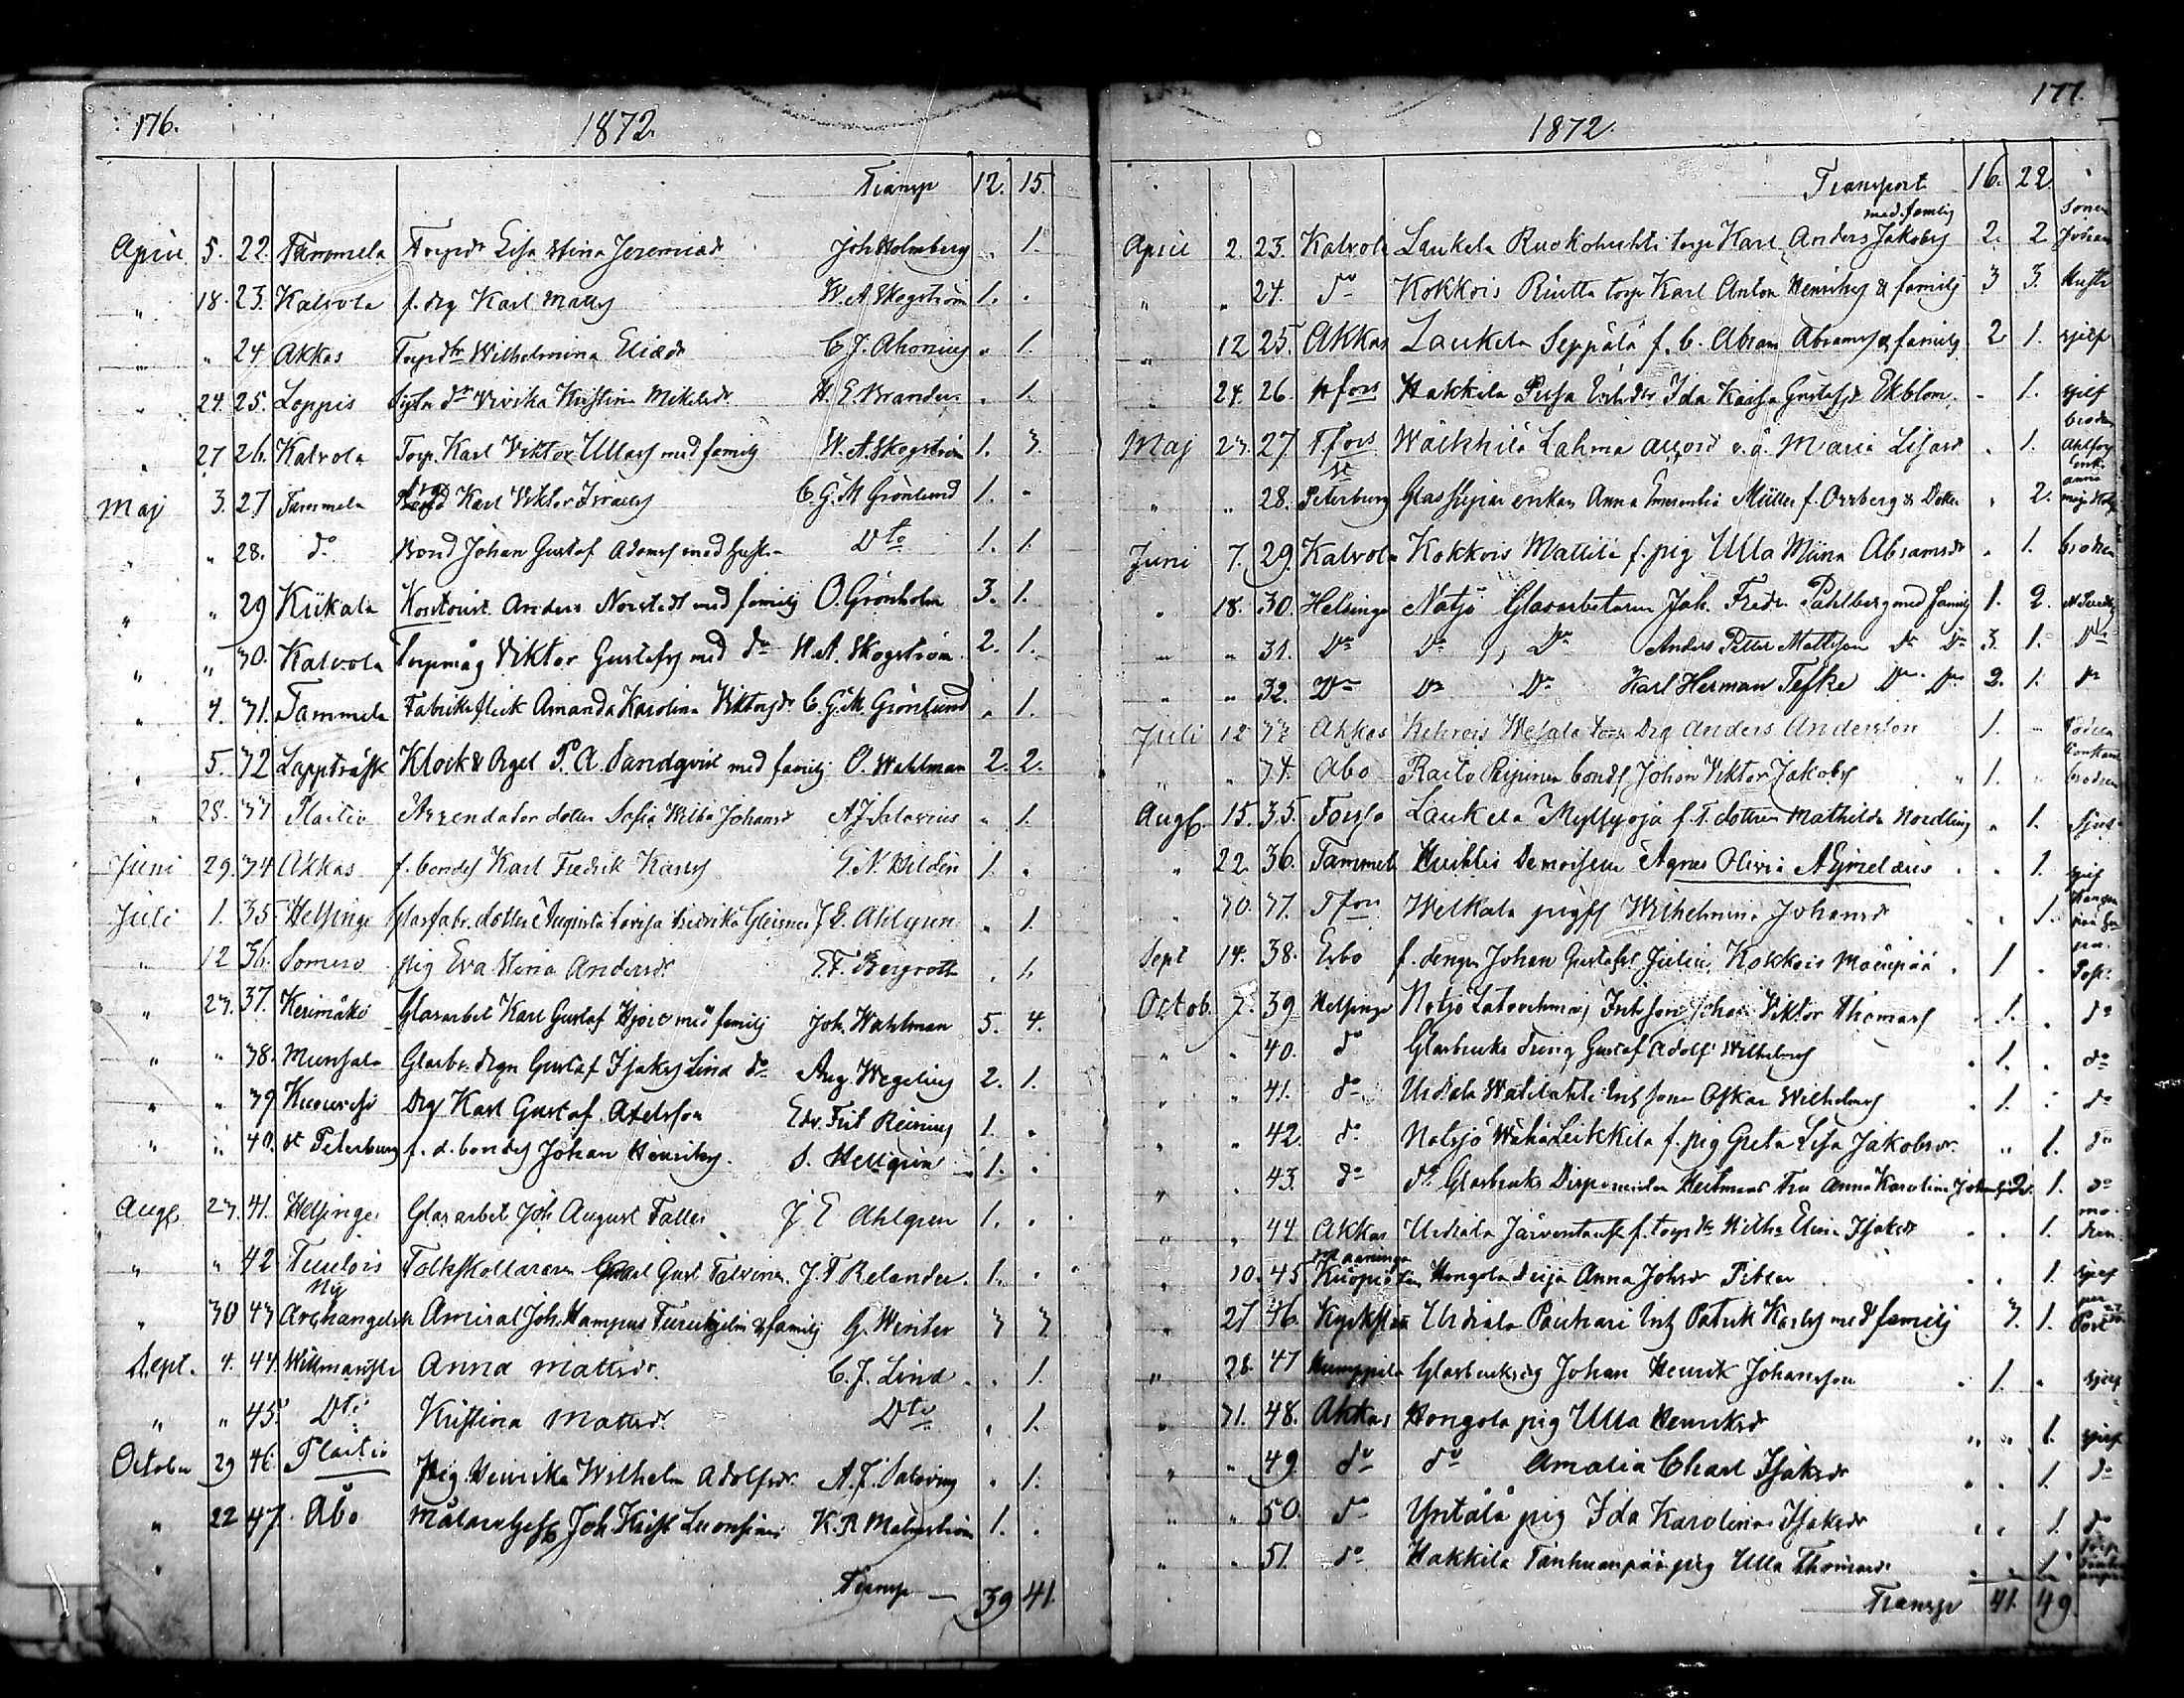 176.
1872.
Transp 12. 15.
April 5. 22. Tammela Torpdr Lisa Stina Jeremiadr Joh Holmberg " 1.
" 18. 23. Kalvola f. drg Karl Matts W. A. Skogström 1. "
" " 24 Akkas Torpdtr Wilhelmina Eliædr C. J. Ahonius " 1.
" 24. 25. Loppis Sytn dr Vivika Kristina Mikelsdr H. E. Brander " 1.
" 27 26. Kalvola Torp. Karl Viktor Ullars med familj W. A. Skogström 1. 3.
Maj 3. 27 Tammela Karl Viktor Israels C. G. M Grönlund 1. "
" " 28. do Bond Johan Gustaf Adams med hustr Dto 1. 1.
" " 29 Kiikala Kontorist Anders Norstedt med familj O. Grönholm 3. 1.
" " 30. Kalvola Torpmåg Viktor Gustafs med do W. A. Skogström 2. 1.
" 4. 31. Tammela Fabriksflick Amanda Karolina Viktorsdr C. G. M. Grönlund " 1.
" 5. 32 Lappträsk Klock & Orgel P. A. Sandqvist med familj O. Wahlman 2. 2.
" 28. 33 Arrendator dotter Sofia Wilha Johansdr A J Salovius " 1.
Juni 29. 34 Akkas f. bonds Karl Fredrik Karls G. N. Hildén 1. "
Juli 1. 35. Helsinge Glasfabr. dotter Augusta Lovisa Fredrika Gleisner J E. Ahlgren " 1.
" 12 36. Somero pig Eva Stina Andersdr E. F. Bergroth " 1.
" 23. 37. Kerimäki Glasarbet Karl Gustaf Hjort med familj Joh. Wahlman 5. 4.
" " 38. Munsala Glasbr. drgn Gustaf Isaks Lind do Aug. Wegelius 2. 1.
" " 39 Kuorevesi Drg Karl Gustaf Axelsson Edv. Frit Reinius 1. "
" " 40. St Peterburg f. d. bonds Johan Henriks. S. Hellgren 1. "
Aug. 23. 41. Helsinge Glasarbet Joh August Faller J E Ahlgren 1. "
" " 42 Tuulois Folkskollararen Karl Gust Talvinen J. F. Relander. 1. "
" 30 43 Ny Archangelsk Amiral Joh. Hampus Furuhjelm & familj G. Winter 3 3
Sept. 4. 44. Willmanstr Anna Mattsdr. C. J. Lind " 1.
" " 45. Dto Kristina Mattsdr Dto " 1.
October 29 46. Pig. Henrika Wilhelm Adolfsdr. A. F. Salovius " 1.
" 22 47. Åbo Målaregesh Joh Krist Leonsson K. R Malmström 1. "
Transp 39 41.
177.
1872.
Transport 16. 22
April 2. 23. Kalvola Laukela Ruokohuhti torp Karl Anders Jakobs med familj 2. 2 Sonen Johan
" " 24. do Kokkois Riutta torp Karl Anton Henriks & familj 3 3. Hustr
" 12 25. Akkas Laukela Seppälä f. b. Abram Abrams & familj 2 1. sjelf
" 24. 26. Hfors Hakkila Pusa Ida Kaisa Gustafsdr Ekblom " 1. sjelf
Maj 23. 27 Tfors Wälkkilä Lahma Maria Lisasdr " 1. broder
" " 28. St Peterburg Glasslipar enkan Anna Emerentia Müller f. Orrberg & Dotter " 2.
Juni 7. 29. Kalvola Kokkois Mattila f. pig Ulla Miina Abramsdr " 1. brodren
" 18. 30. Helsinge Notsjö Glasarbetaren Joh. Fredr. Pahlberg med familj 1. 2.
" " 31. Do Do Do Anders Petter Mattsson Do Do 3. 1. Do
" " 32. Do Do Do Karl Herman Tefke Do Do 2. 1. do
Juli 12 33 Akkas Kehrois Wesala torp Drg Anders Andersson 1. "
" " 34. Åbo Rasto Reipinen bonds Johan Viktor Jakobs 1. " brodren
Aug. 15. 35. Forssa Laukela Myllyoja f. T. dottren Mathilda Nordling " 1.
" 22 36. Tammela Huhtis Demoisellen Agnes Olivia Aejmelæus " 1. sjelf
" 30. 37. Tfors Welkala Wilhelmina Johansdr " 1.
Sept 14. 38. Esbo f. drengen Johan Gustafss Julin, Kokkois Mäenpää 1. "
Octob. 7. 39 Helsinge Notsjö Inhs son Johan Viktor Thomass 1. " do
" " 40. do Glasbruks dreng Gustaf Adolf Wilhelms 1. " do
" " 41. do Urdiala Inhs sonen Oskar Wilhelms 1. " do
" " 42. do Notsjö Wähä Leikkila f. pig Greta Lisa Jakobsdr. " 1. do
" " 43. do do Glasbruks Disponenten Heitmans Fru Anna Karolina 1. do
" " 44 Akkas Urdiala Järventausta f. torp dr Wilha Elina Isaksdr " 1.
" 10. 45 Maaninga Kuopio län Hongola deija Anna Johsdr Pitsen " 1. sjelf
" 27 46. Kyrkslätt Urdiala Pauhari Inh Patrik Karls med familj 3. 1.
" 28. 47 Humppila Glasbruksdrg Johan Henrik Johansson 1. " sjelf
" 31. 48. Akkas Hongola pig Ulla Henriksdr " 1. sjelf
" " 49 do do Amalia Charl Isaksdr " 1. do
" " 50. do Yrtälä pig Ida Karolina Isaksdr " 1. do
" " 51. do Hakkila Tanhuanpää pig Ulla Thomasdr " 1.
Transp 41. 49.